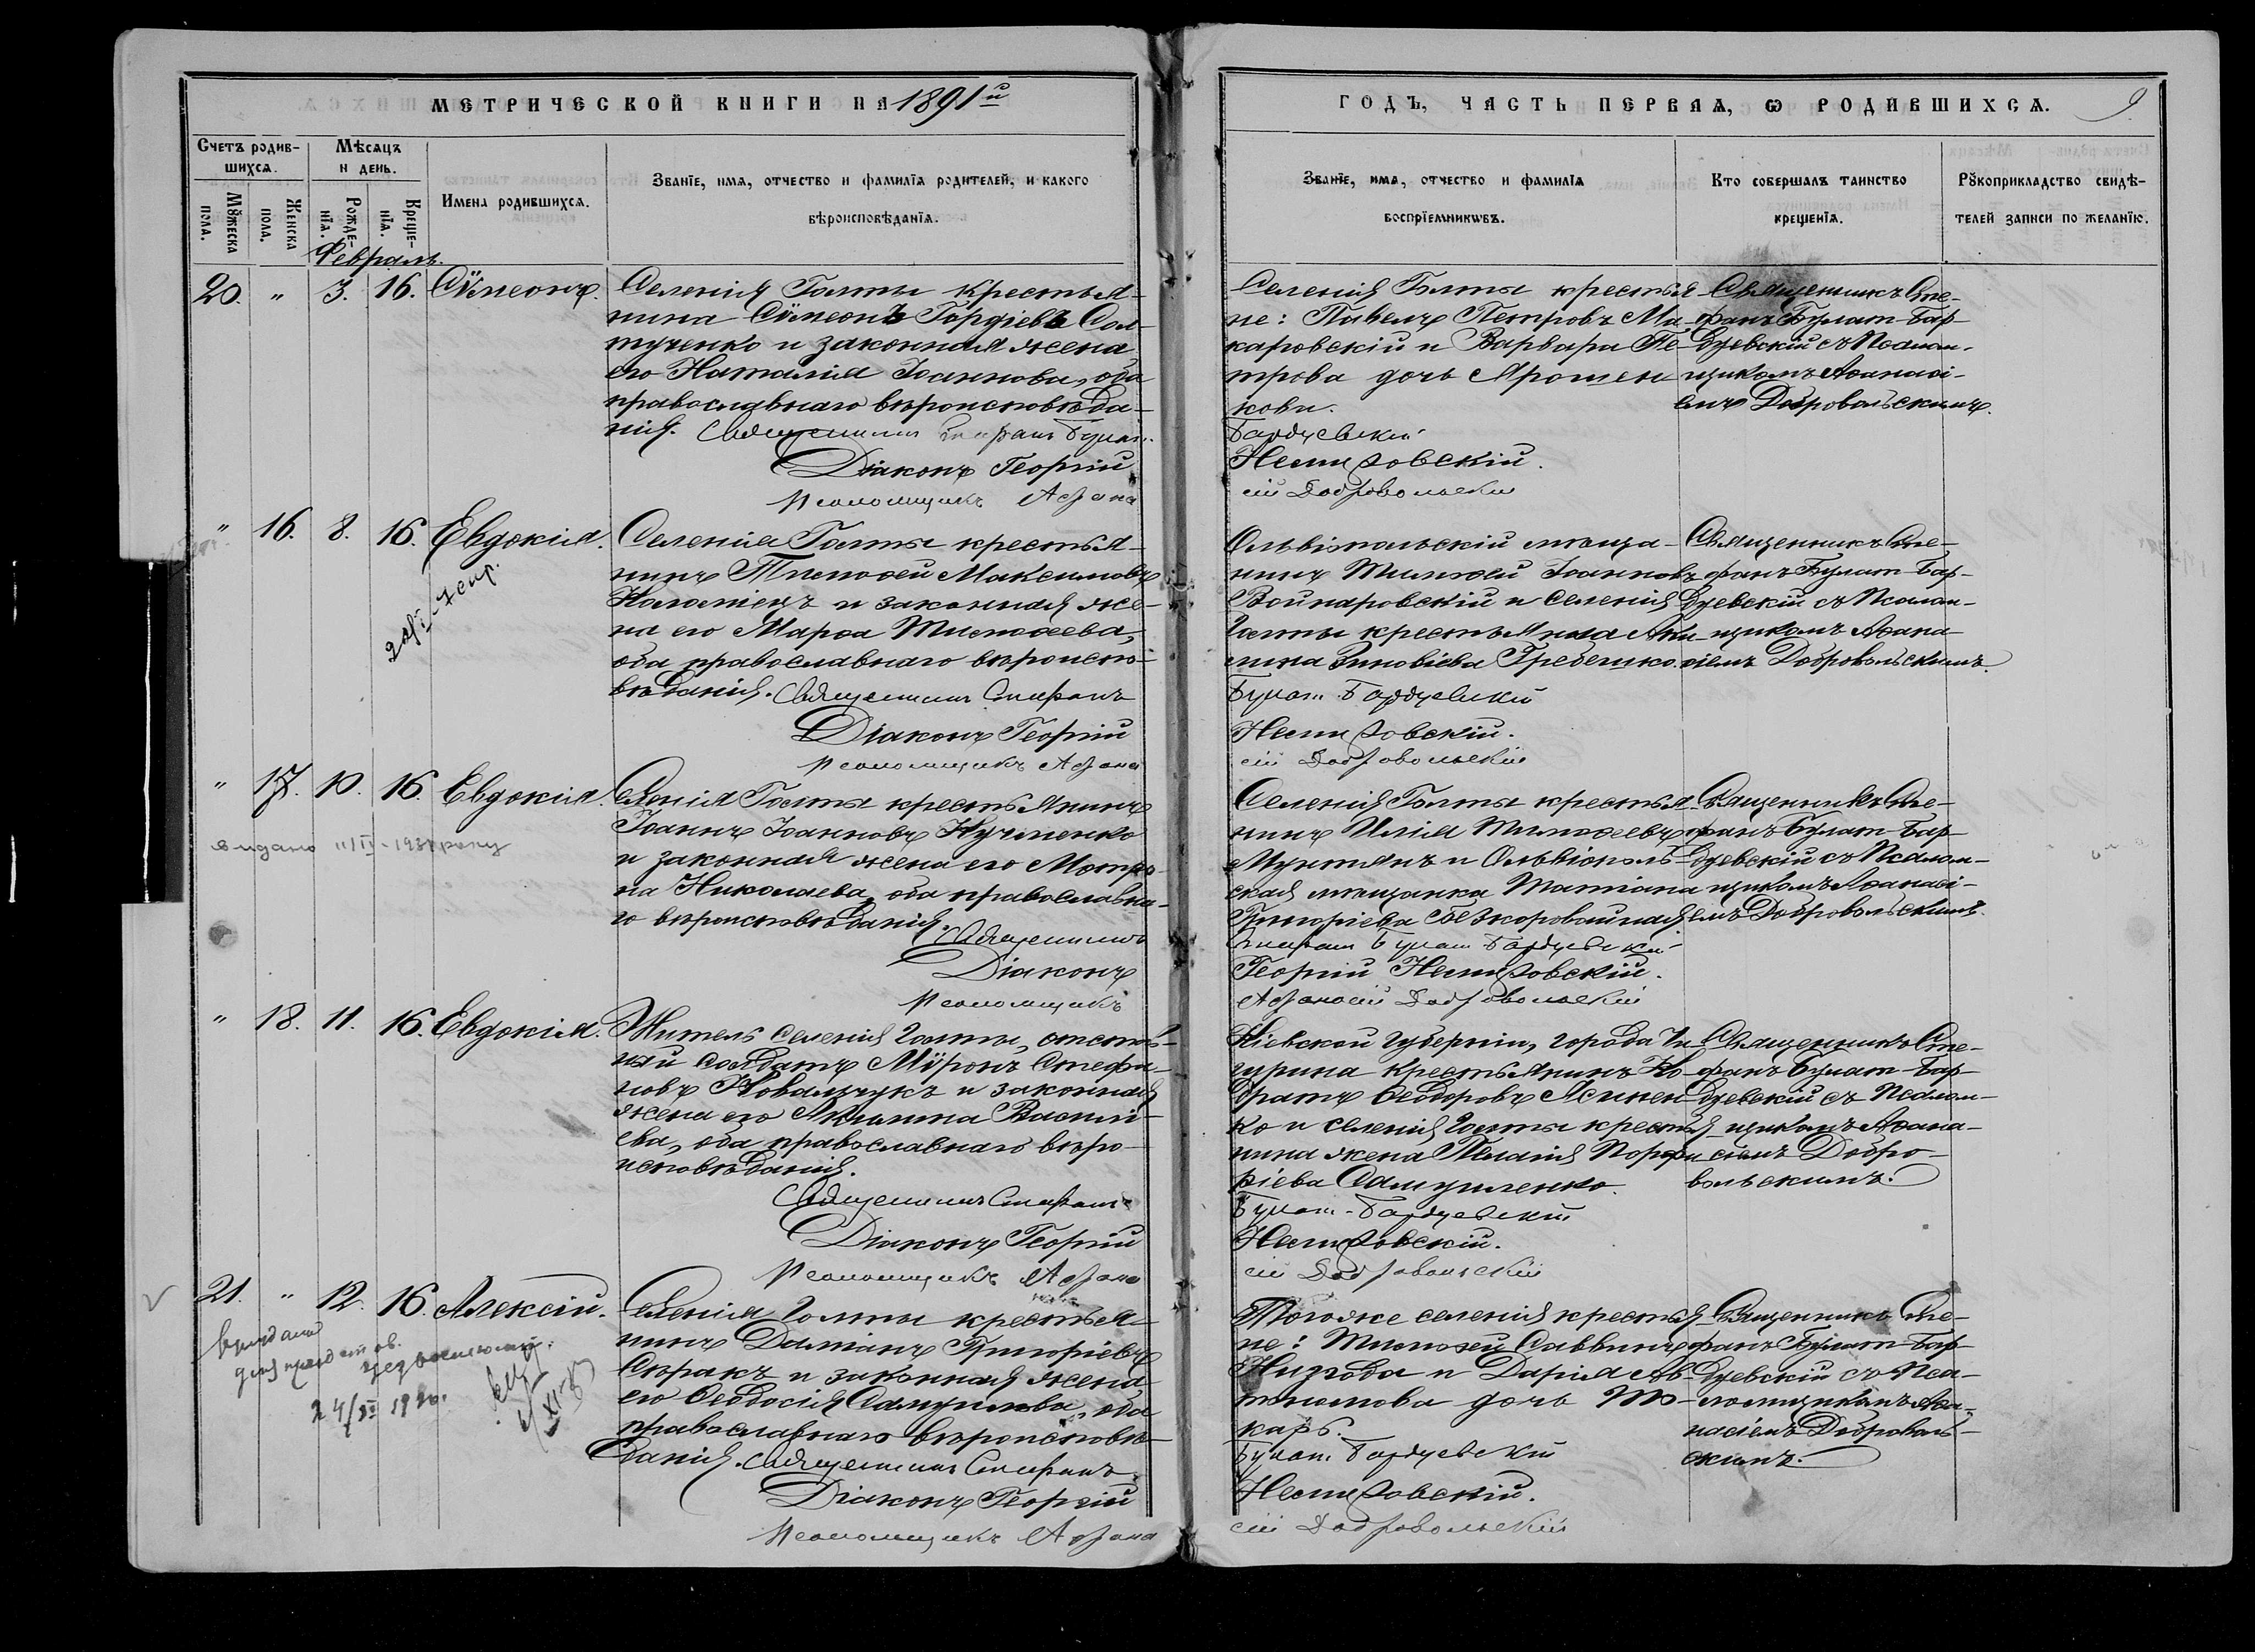 МЕТРИЧЕСКОЙ КНИГИ НА 1891й
ГОДЪ, ЧАСТЬ ПЕРВАЯ, Ѡ РОДИВШИХСѦ.
9
Счетъ родив-
шихсѧ.
Мѣсяцъ
и день.
Мꙋжеска
пола.
Женска
пола.
Рожде-
нїѧ.
Креще-
нїѧ.
Имена родившихсѧ.
Званїе, имѧ, отчество и фамилїѧ родителей, и какого
вѣроисповѣданїѧ.
Званїе, имѧ, отчество и фамилїѧ
воспрїемникѡвъ.
Кто совершалъ таинство
крещенїѧ.
Рꙋкоприкладство свидѣ-
телей записи по желанїю.
Февраль.
20. " 3. 16. Сѵмеонъ.
Селенія Голты крестья-
нина Сѵмеонъ Гордіевъ Сол-
тученко и законная жена
его Наталія Іоаннова, оба
православнаго вѣроисповѣда-
нія. Священникъ Стефанъ Булат-
Діаконъ Георгій
Псаломщикъ Афана
Селенія Голты крестья-
не: Павелъ Петровъ Ма-
каровскій и Варвара Пе-
трова дочь Ярошен
кова.
Бардуевскій
Немировскій.
сій Добровольскій
Священникъ Сте-
фанъ Булат-Бар-
дуевскій съ Псалом-
щикомъ Аѳанасі-
емъ Добровольскимъ.
" 16. 8. 16. Евдокія.
Селенія Голты крестья-
нинъ Тимоѳей Максимовъ
Коломіецъ и законная же-
на его Марѳа Тимоѳеева,
оба православнаго вѣроиспо-
вѣданія. Священникъ Стефанъ
Діаконъ Георгій
Псаломщикъ Афана
Ольвіопольскій мѣща-
нинъ Тимоѳей Іоанновъ
Войнаровскій и селенія
Голты крестьянка Аки-
лина Зиновіева Гребешко.
Булат-Бардуевскій
Немировскій.
сій Добровольскій
Священникъ Сте-
фанъ Булат-Бар-
дуевскій съ Псалом-
щикомъ Аѳана-
сіемъ Добровольскимъ.
" 17. 10. 16. Евдокія.
видано 11/II-193 року
Селенія Голты крестьянинъ
Іоаннъ Іоанновъ Кучменко
и законная жена его Мотро-
на Николаева, оба православна-
го вѣроисповѣданія.
Священникъ
Діаконъ
Псаломщикъ
Селенія Голты крестья-
нинъ Илія Тимоѳеевъ
Мунтянъ и Ольвіополь-
ская мѣщанка Татіана
Григоріева Безкоровайная
Стефанъ Булат Бардуевскій
Георгій Немировскій.
Афанасій Добровольскій
Священникъ Сте-
фанъ Булат-Бар-
дуевскій съ Псалом-
щикомъ Аѳанасі-
емъ Добровольскимъ.
" 18. 11. 16. Евдокія.
Житель селенія Голты, отстав-
ный солдатъ Мѵронъ Стефа-
новъ Ковальчукъ и законная
жена его Акилина Василі-
ева, оба православнаго вѣро-
исповѣданія.
Священникъ Стефанъ
Діаконъ Георгій
Псаломщикъ Афана
Кіевской губерніи, города Чи-
гурина крестьянинъ Ко-
дратъ Ѳеодоровъ Ясинен
ко и селенія Голты крестья-
нина жена Пелагія Порфи
ріева Самуиленко.
Булат-Бардуевскій
Немировскій.
сій Добровольскій
Священникъ Сте-
фанъ Булат-Бар-
дуевскій съ Псалом-
щикомъ Аѳана-
сіемъ Добро-
вольскимъ.
21. " 12. 16. Алексій.
24/XI 1920.
Селенія Голты крестья-
нинъ Даміанъ Григоріевъ
Сиракъ и законная жена
его Ѳеодосія Самуилова, оба
православнаго вѣроисповѣ-
данія. Священникъ Стефанъ
Діаконъ Георгій
Псаломщикъ Афана
Тогоже селенія крестья-
не: Тимоѳей Саввинъ
и Дарія Ав-
тономова дочь То-
карь.
Булат Бардуевскій
Немировскій.
сій Добровольскій
Священникъ Сте-
фанъ Булат-Бар-
дуевскій съ Пса-
ломщикомъ Аѳа-
насіемъ Доброволь-
скимъ.